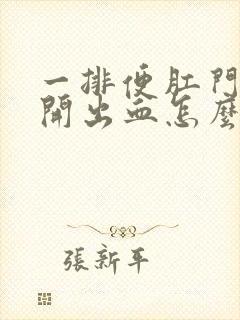 一排便肛門
開出血怎麼
張新平